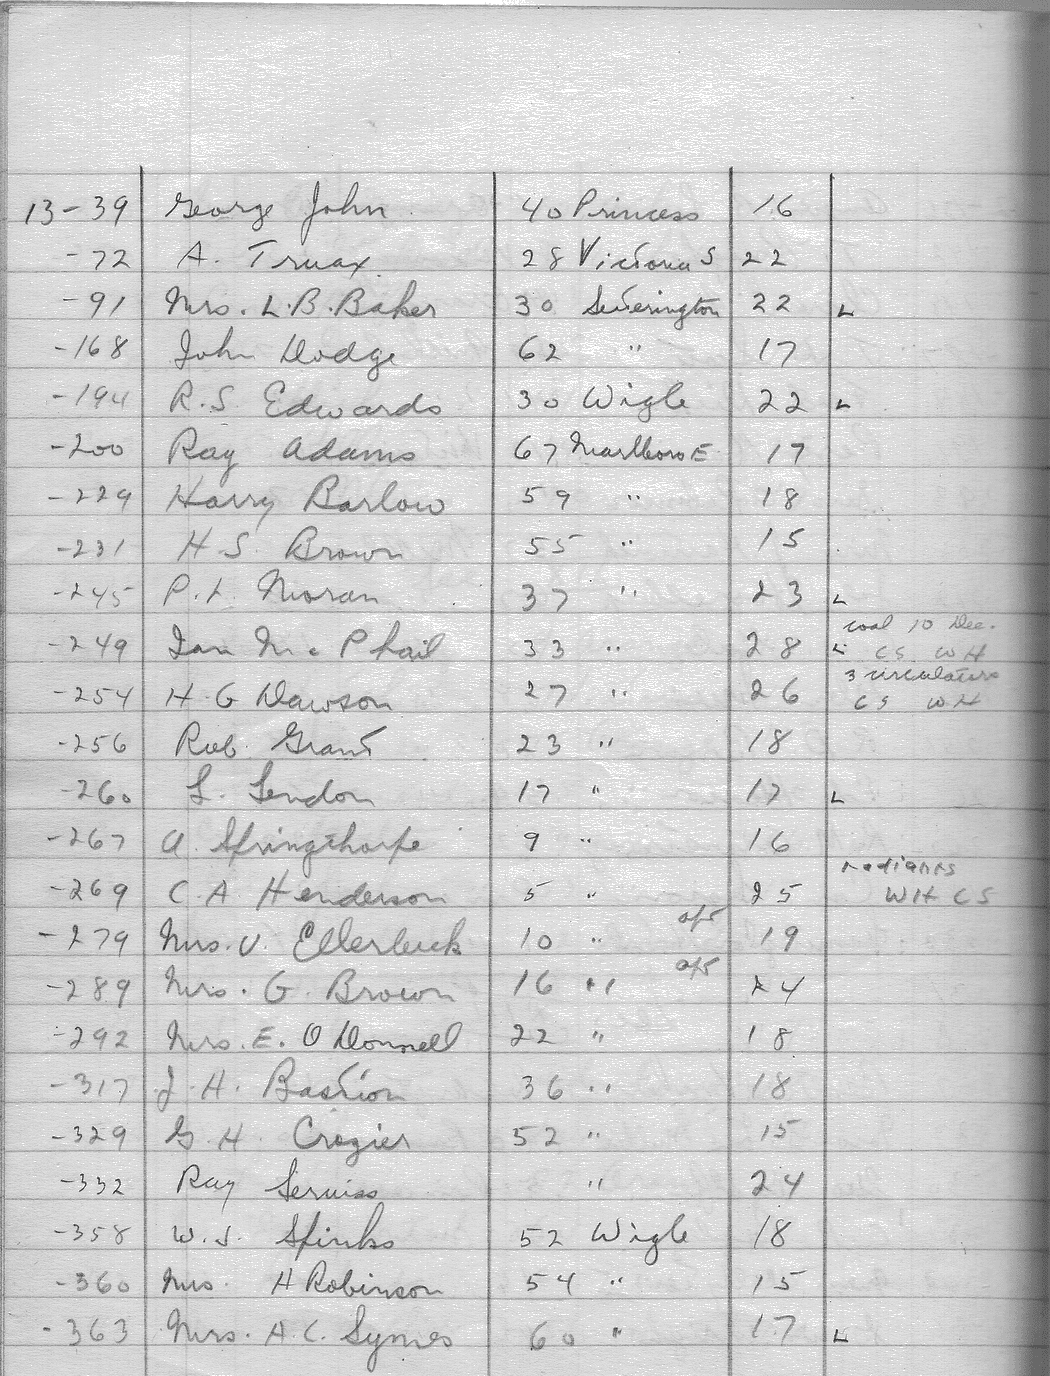 13-39 George John 40 Princess 16
-72 A. Truax 28 Victoria S 22
-91 Mrs. L.B. Baker 30 Setterington 22 L
-168 John Dodge 62 " 17
-194 R.S Edwards 30 Wigle 22 L
-200 Ray Adams 67 Marlboro E 17
-229 Harry Barlow 59 " 18
-231 H.S. Brown 55 " 15
-245 P.L. Moran 37 " 23 L
coal 10 Dec.
-249 Ian Mc Phail 33 " 28 L CS WH
3 circulators
-254 H.G Dawson 27 " 26 CS WH
-256 Rob. Grant 23 " 18
-260 L. Lendon 17 " 17 L
-267 A. Springthorpe 9 " 16
radiants
-269 C.A Henderson 5 " 25 WH CS
-279 Mrs. V. Ellerbeck 10 " 19
-289 Mrs. G. Brown 16 " 24
-292 Mrs. E. O Donnell 22 " 18
-317 J.H. Bastion 36 " 18
-329 G.H. Crozier 52 " 15
-332 Ray Serviss " 24
-358 W.J. Spinks 52 Wigle 18
-360 Mrs. H Robinson 54 " 15
-363 Mrs. A.C. Symes 60 " 17 L